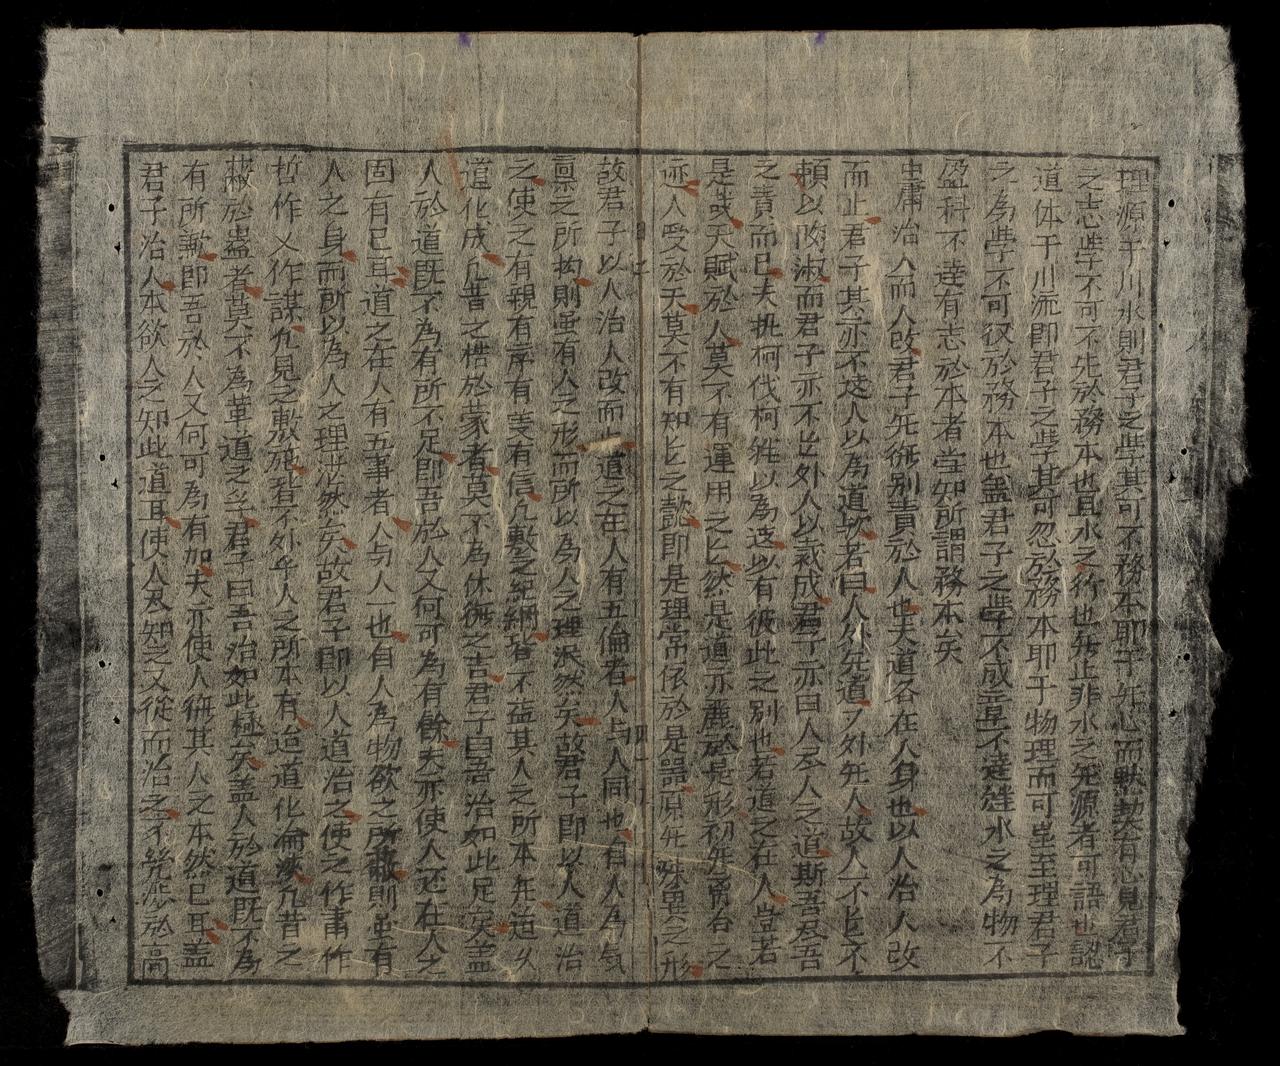 理源于川水則君子之学其可不務本耶于年心而默契有以見君子
之志学不可不先於務本也且水之行也无止非水之无源者可語也認
道体于川流即君子之学其可忽於務本耶于物理而可坐至理君子
之為学不可後於務本也盖君子之学不成章不達雖水之為物不
盈科不達有志於本者當知所謂務本矣
中庸治人而人改君子先无别責於人也夫道各在人身也以人治人改
而止君子其亦不逺人以為道歟若曰人外无道道外无人故人不以不
頼以陶淑而君子亦不必外人以裁成君子亦曰人至人之道斯吾尽吾
之責而已夫执柯伐柯雖以為逺以有彼此之别也若道之在人豈若
是哉天賦於人莫不有運用之以然是道亦麗於是形初无离合之
迹人受於天莫不有知以之懿即是理常依於是器原无殊異之形
故君子以人治人改而止道之在人有五倫者人与人同也有人為氣
禀之所拘則虽有人之形而所以為人之理泯然矣故君子即以人道治
之使之有親有序有義有信凡敷之紀綱皆不益其人之所本年道以
道化成凡昔之梏於蒙者莫不為休徴之吉君子曰吾治如此足矣盖
人於道既不為有所不足即吾於人又何可為有餘夫亦使人还在人之
固有已耳道之在人有五事者人与人一也自人為物欲之所蔽則虽有
人之身而所以為人之理泯然矣故君子即以人道治之使之作肃作
哲作乂作謀凡見之敷施者不外乎人之所本有迨道化淪浹凡昔之
蔽於蠱者莫不為革道之孚君子曰吾治如此極矣盖人於道既不為
有所歉即吾於人又何可為有加夫亦使人衎其人之本然已耳盖
君子治人本欲人之知此道耳使人及知之又從而治之不幾涉於高